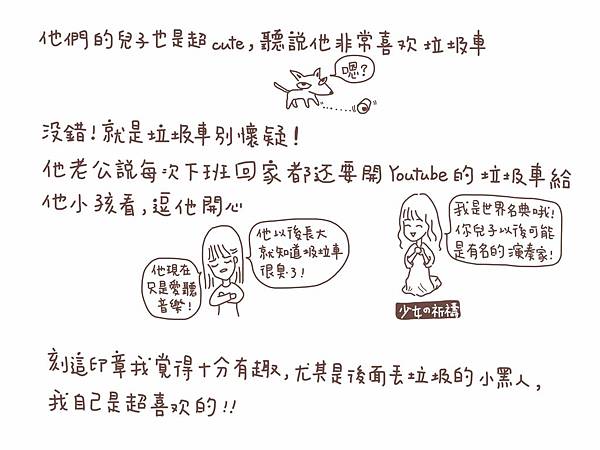 他們的兒子也是超cute,聽說他非常喜欢垃圾車
嗯?
没錯!就是垃圾車別懷疑!
他老公説每次下班回家都还要開Youtube的垃圾車給
他小孩看,逗他開心
他現在
只是愛聽
音樂!
他以後長大
就知道圾垃車
很臭了!
我是世界名典哦!
你兒子以後可能
是有名的演奏家!
少女の祈禱
刻這印章我覺得十分有趣,尤其是後面丢垃圾的小黑人,
我自己是超喜欢的!!